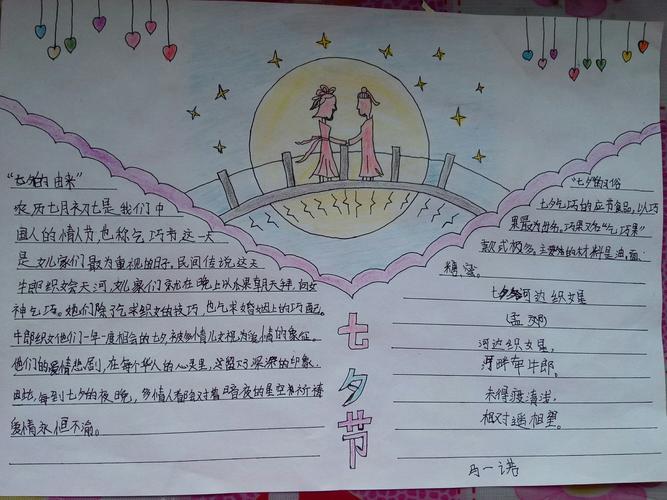 "七夕的由来"
农历七月初七是我们中
国人的情人节,也称乞巧节这一天
是女儿家们最为重视的日子,民间传说这天
牛郎织女会天河,女儿家们就在晚上以水果朝天拜,向女
神乞巧。她们除了乞求织女的技巧,也乞求婚姻上的巧配。
牛郎织女他们一年一度相会的七夕,被多情儿女视为爱情的象征。
他们的爱情悲剧,在每个华人的心灵里,
深深的印象.
因此,每到七夕的夜晚,多情人都会对着暗夜的星空祈祷
爱情永恒不渝。
七夕节
"七夕的习俗
七夕乞巧的应节食品,以巧
果最为出名,巧果又名"乞巧果"
款式极多,主要的材料是油,面.
糖,蜜。
七夕河边织女星
(孟郊)
河边织女星,
河畔牵牛郎。
未得渡清浅,
相对遥相望。